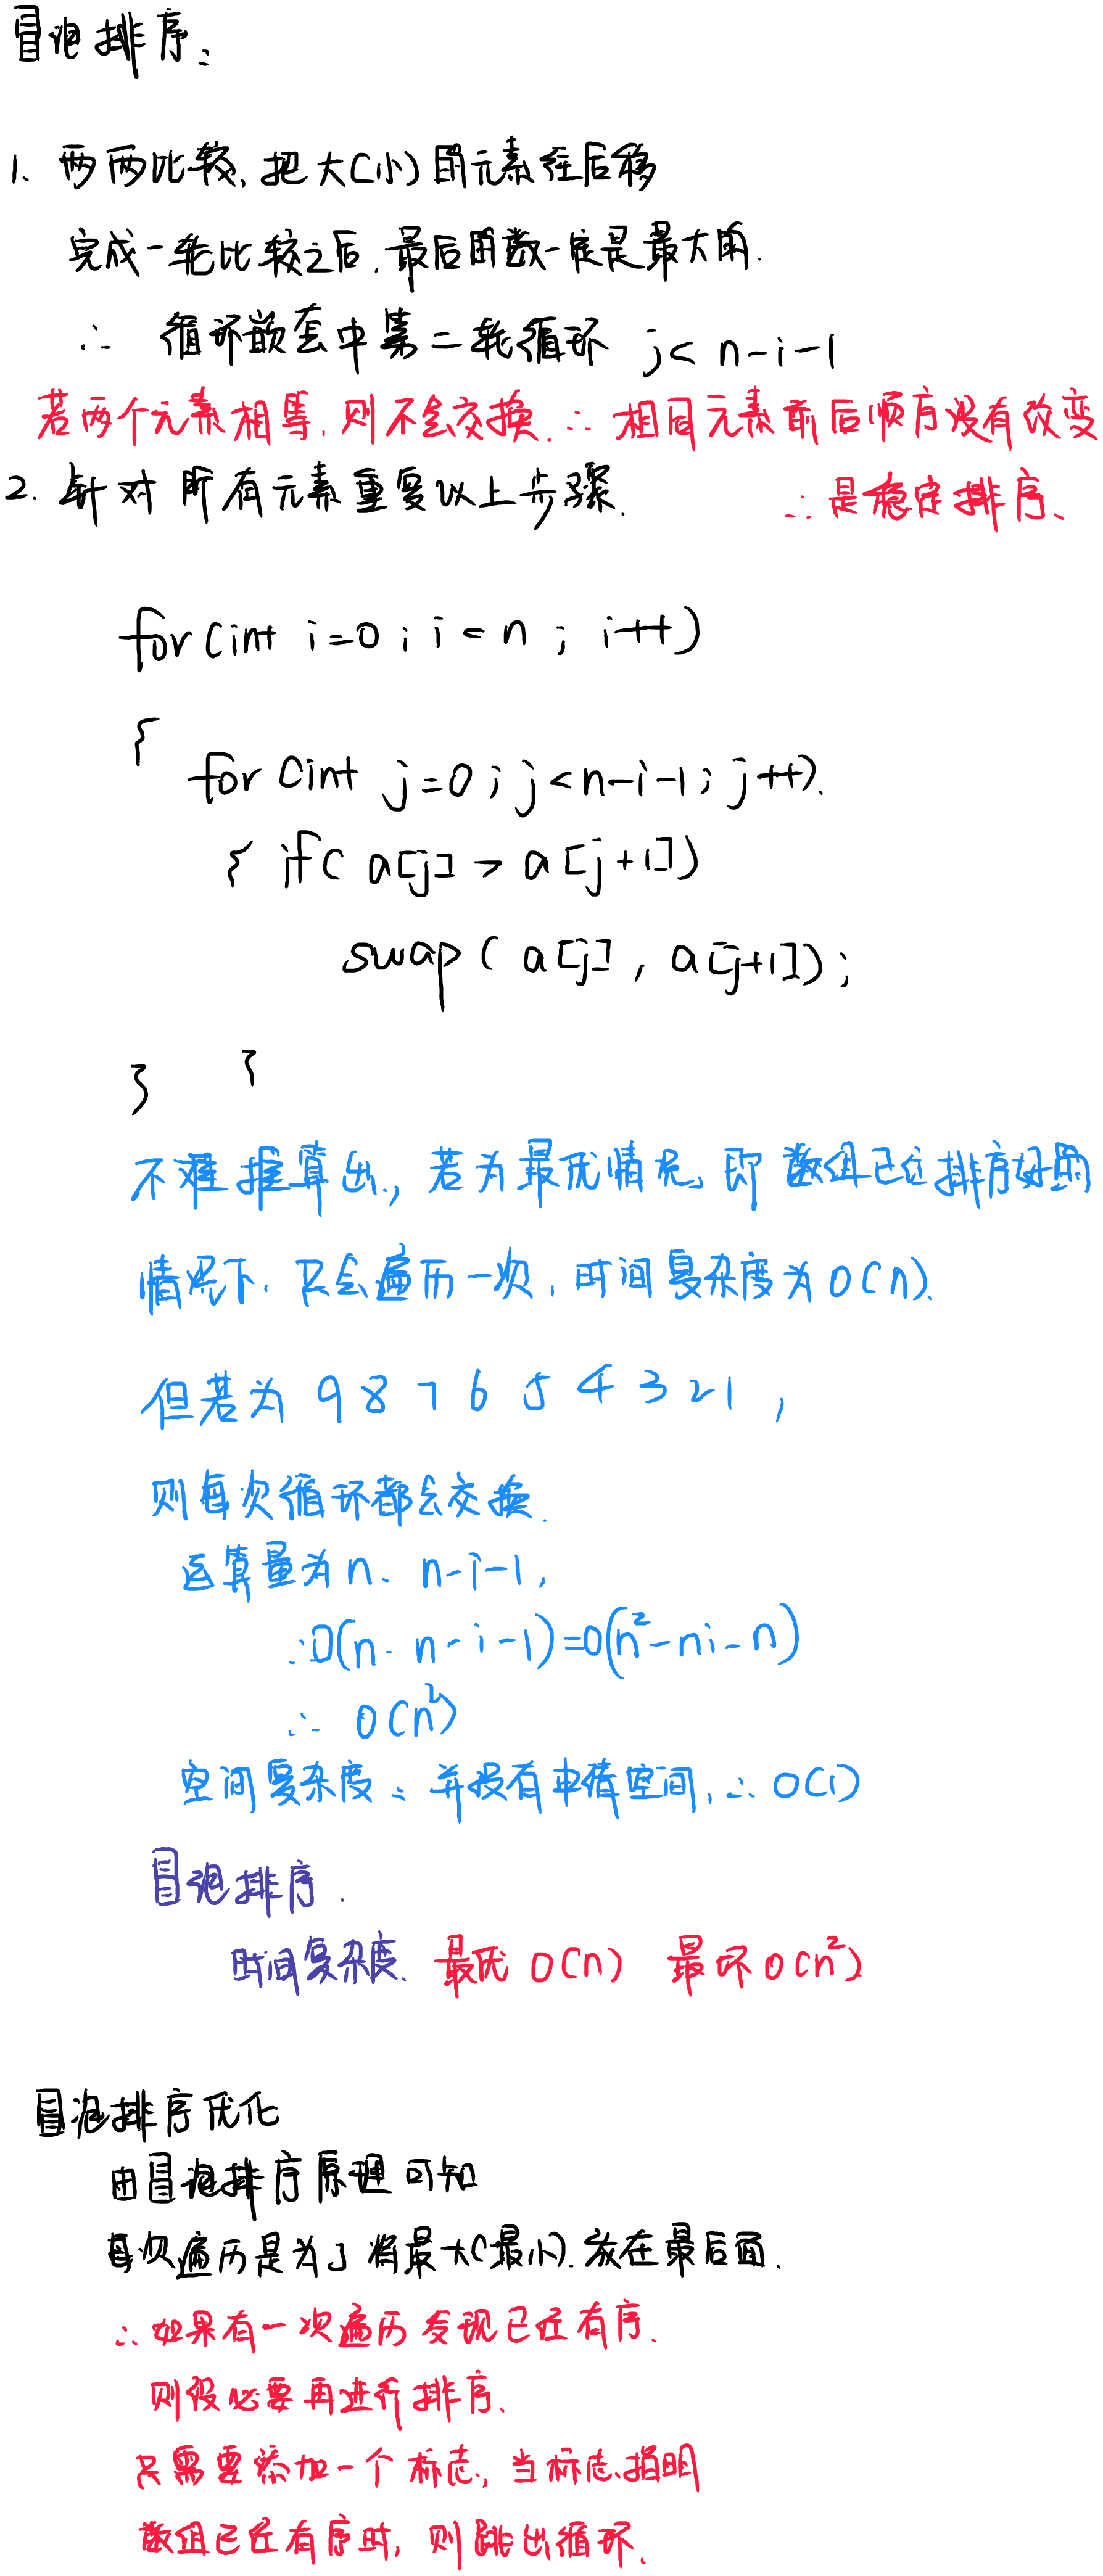 冒泡排序:
1、两两比较,把大(小)的元素往后移
完成一轮比较之后,最后的数一定是最大的.
∴ 循环嵌套中第二轮循环 j< n-i-1
若两个元素相等,则不会交换.∴相同元素前后顺序没有改变
2. 针对所有元素重复以上步骤. ∴是稳定排序、
for(int i=0;i<n;i++)
{
for(int j=0;j<n-i-1;j++).
{ if( a[j] > a[j+1])
swap( a[j], a[j+1]);
} }
不难推算出,若为最优情况,即数组已经排序好的
情况下,只会遍历一次,时间复杂度为O(n).
但若为 9 8 7 6 5 4 3 2 1,
则每次循环都会交换.
运算量为n. n-i-1,
∴O(n. n-i-1)=O(n²-ni-n)
∴ O(n²)
空间复杂度: 并没有申请空间,∴ O(1)
冒泡排序.
时间复杂度. 最优 O(n) 最坏 O(n²)
冒泡排序优化
由冒泡排序原理可知
每次遍历是为了将最大(最小).放在最后面.
∴如果有一次遍历发现已经有序.
则没必要再进行排序、
只需要添加一个标志,当标志指明
数组已经有序时,则跳出循环.